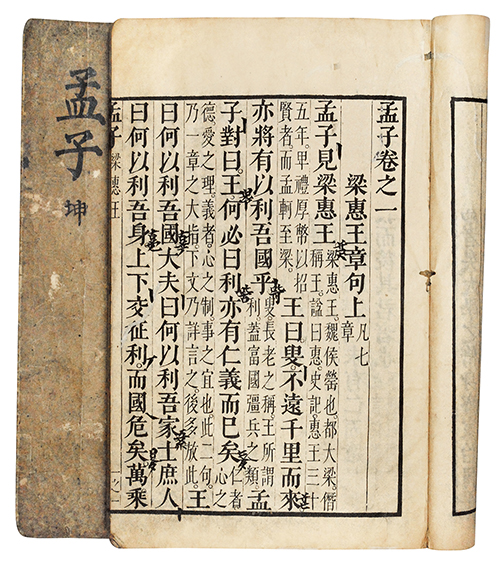 孟子卷之一
梁惠王章句上 凡七章
孟子見梁惠王 梁惠王魏侯罃也都大梁僭
稱王謚曰惠史記惠王三十
五年卑禮厚幣以招
賢者而孟軻至梁 王曰叟不遠千里而來
亦將有以利吾國乎 叟長老之稱王所謂
利蓋富國彊兵之類 孟
子對曰王何必曰利亦有仁義而已矣 仁者
心之
德愛之理義者心之制事之宜也此二句
乃一章之大指下文乃詳言之後多放此 王
曰何以利吾國大夫曰何以利吾家士庶人
曰何以利吾身上下交征利而國危矣萬乘
孟子 梁惠王
孟子 坤